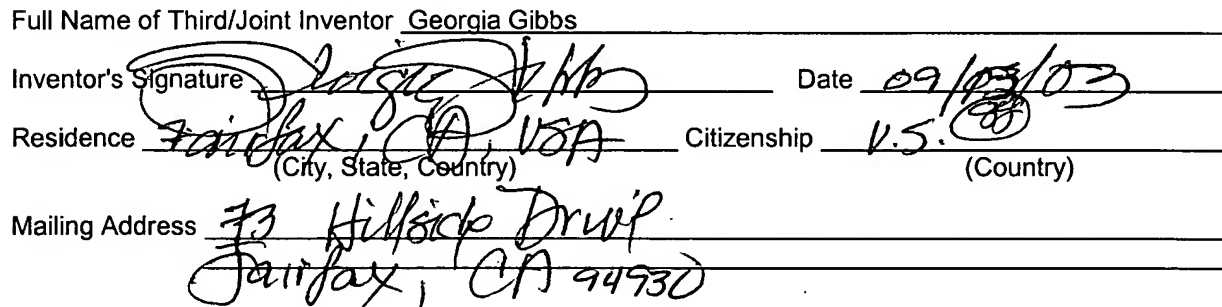 Full Name of Third/Joint Inventor Georgia Gibbs
Inventor's Signature Georgia Gibbs Date 09/03/03
Residence Fairfax, CA, USA Citizenship U.S.
(City, State, Country) (Country)
Mailing Address 73 Hillside Drive
Fairfax, CA 94930